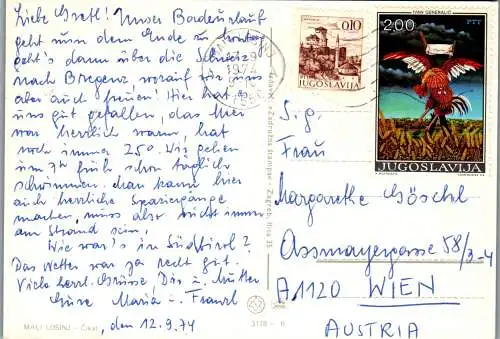 Liebe Gretl! Unser Badeurlaub
geht nun dem Ende zu, Sonntag
geht's dann über die Schweiz
nach Bregenz worauf wir uns
aber auch freuen! Hier hat es
uns gut gefallen, das Meer
war herrlich warm, hat
noch immer 25°. Wir gehen
um 7h früh schon täglich
schwimmen. Man kann hier
auch herrliche Spaziergänge
machen, muss also nicht immer
am Strand sein.
Wie war's in Südtirol?
Das Wetter war ja recht gut.
Viele herzl. Grüsse, Dir u. Mutter
Eure Maria u. Franzl
MALI LOŠINJ – Čikat
, den 12.9.74
0,10
JUGOSLAVIJA
IVAN GENERALIĆ
2.00
PTT
JUGOSLAVIJA
S.g.
Frau
Margarethe Göschl
Assmayergasse 58/3-4
A1120 WIEN
AUSTRIA
Zadružna štampa - Zagreb, Ilica 35
3128 - B